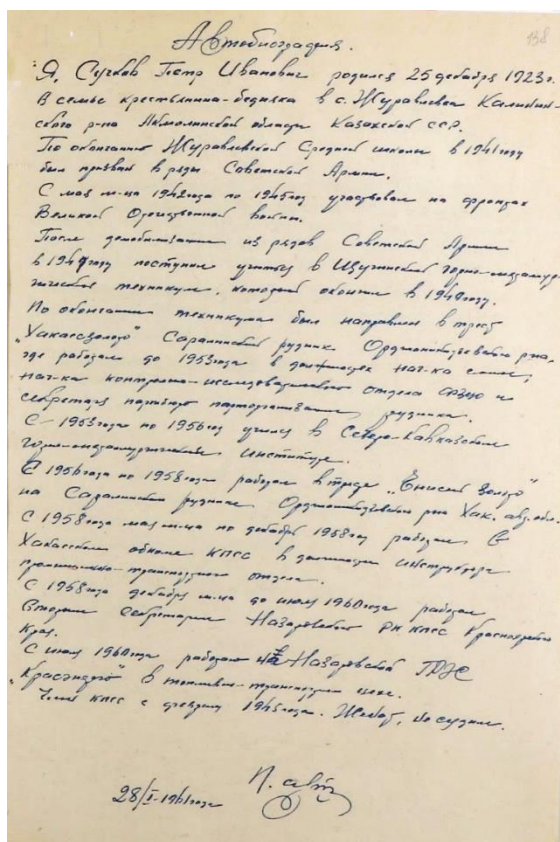 138
Автобиография.
Я, Сучков Петр Иванович родился 25 декабря 1923 г.
в семье крестьянина-бедняка в с. Журавлевка Калинин-
ского р-на Акмолинской области Казахской ССР.
По окончании Журавлевской Средней школы в 1941 году
был призван в ряды Советской Армии.
С мая м-ца 1942 года по 1945 год участвовал на фронтах
Великой Отечественной войны.
После демобилизации из рядов Советской Армии
в году поступил учиться в Щучинский горно-металлур-
гический техникум, который окончил в году.
По окончании техникума был направлен в трест
„Хакасзолото" Саралинский рудник Орджоникидзевского р-на,
где работал до 1953 года в должностях нач-ка смены,
нач-ка контрольно-исследовательского отдела и
секретаря парторганизации рудника.
С 1953 года по 1956 год учился в Северо-Кавказском
горно-металлургическом институте.
С 1956 года по 1958 год работал в тресте „Енисей золото"
на Саралинском руднике Орджоникидзевского р-на Хак. авт. обл.
С 1958 года мая м-ца по декабрь 1958 год работал в
Хакасском обкоме КПСС в должности инструктора
промышленно-транспортного отдела.
С 1958 года декабря м-ца до июля 1960 года работал
вторым секретарем Назаровского РК КПСС Красноярского
края.
С июля 1960 года работаю на Назаровской ГРЭС
„Красэнерго" в топливно-транспортном цехе.
Член КПСС с февраля 1945 года. Женат, не судим.
28/I-1961 года